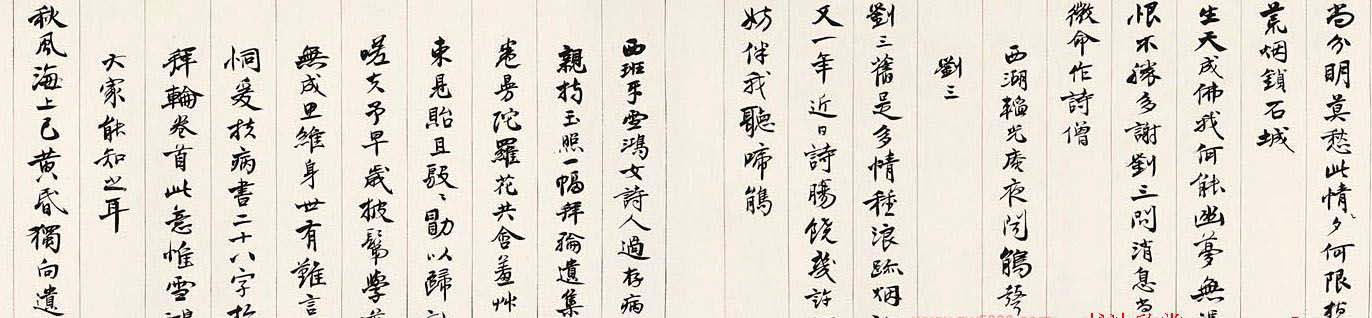 尚分明莫愁此情夕何限指
荒烟鎖石城
生天成佛我何能幽夢無憑
恨不勝多謝劉三問消息尚
微命作詩僧
西湖韜光庵夜聞鵑聲
劉三
劉三舊是多情種浪跡烟
又一年近日詩腸饒幾許
妨伴我聽啼鵑
西班牙雪鴻女詩人過存病
親持玉照一幅拜輪遺集
卷曼陀羅花共含羞艸
束見貽且殷〻勖以歸
嗟夫予早歲披鬀學
無成思維身世有難言
恫爰扶病書二十八字於
拜輪卷首此意惟雪鴻
大家能知之耳
秋風海上已黃昏獨向遺